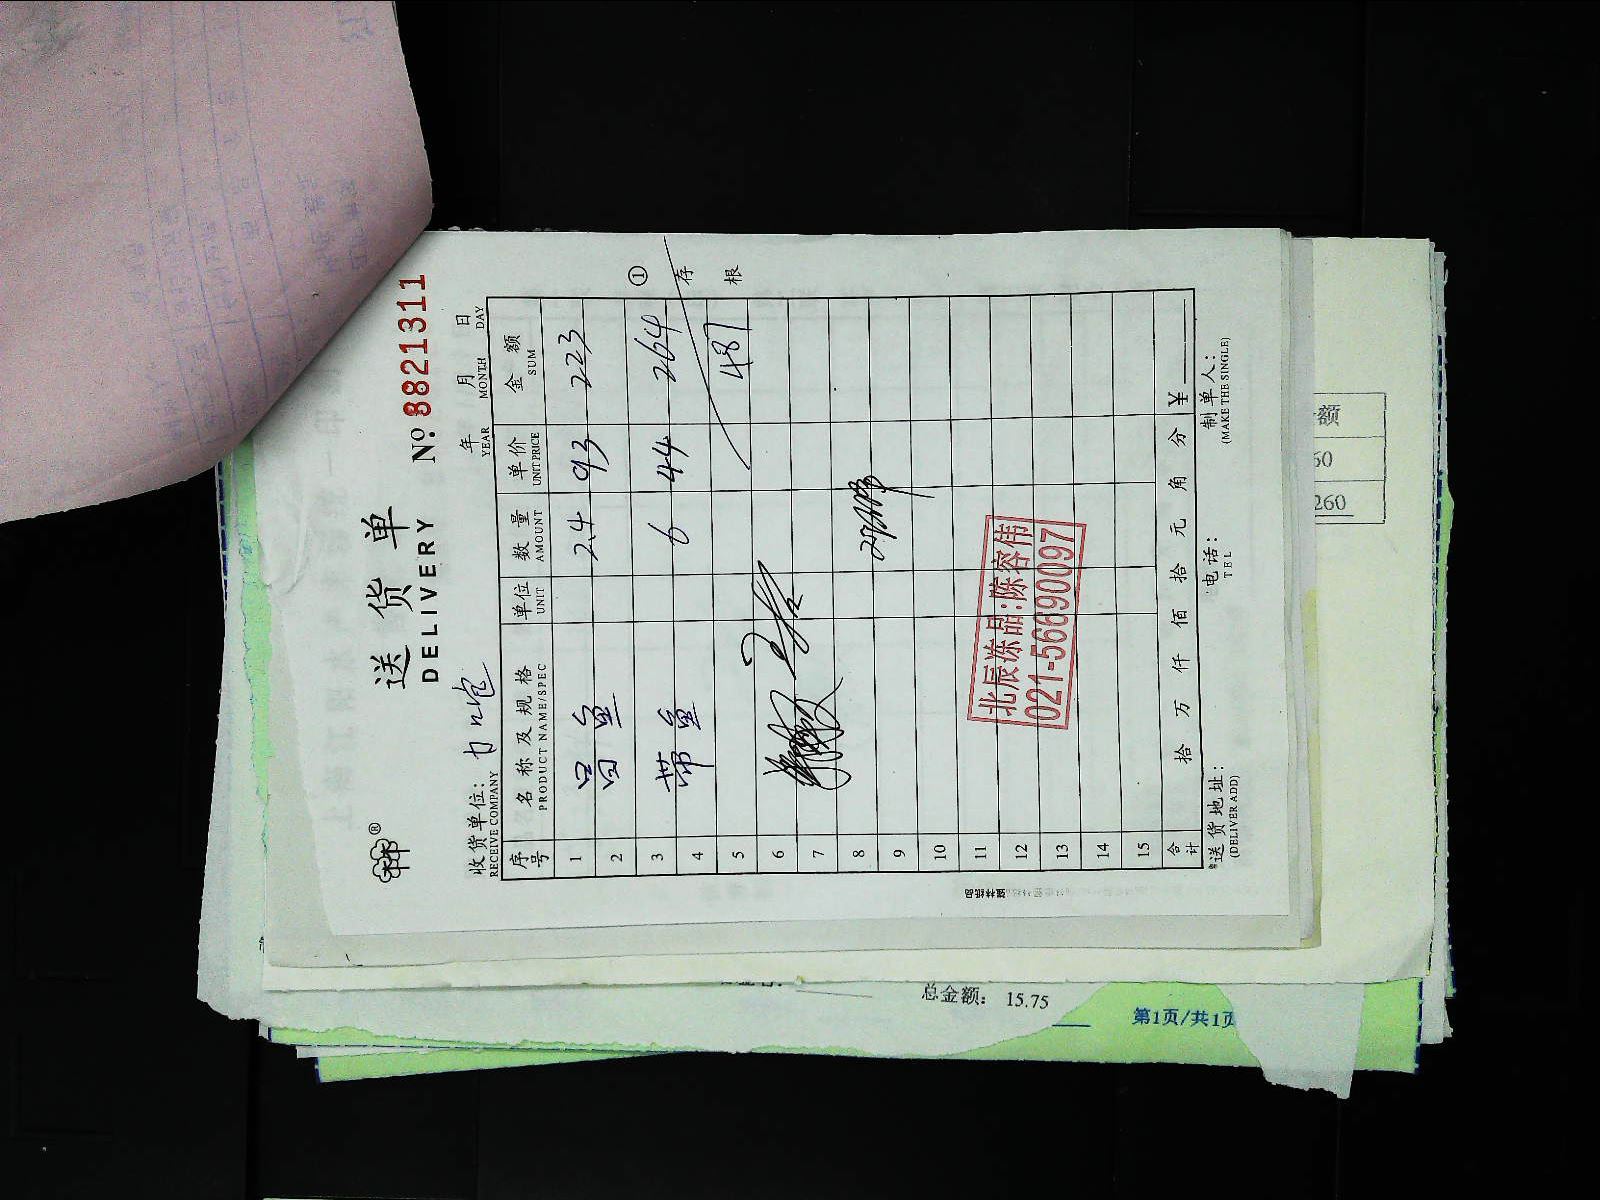 送货单
DELIVERY
№: 8821311
收货单位：
RECEIVE COMPANY
年 月 日
YEAR MONTH DAY
序号 名称及规格 单位 数量 单价 金额
PRODUCT NAME/SPEC UNIT AMOUNT UNIT PRICE SUM
1 昌鱼 2.4 93 223
2
3 带鱼 6 44 264
4
5 487
6
7
8
9
10
11
12
13
14
15
合计 拾 万 仟 佰 拾 元 角 分 ¥
送货地址： 电话： 制单人：
(DELIVER ADD) TEL (MAKE THE SINGLE)
① 存根
北辰冻品:陈容伟
021-56690097
强林纸品
额
60
260
总金额： 15.75
第1页/共1页